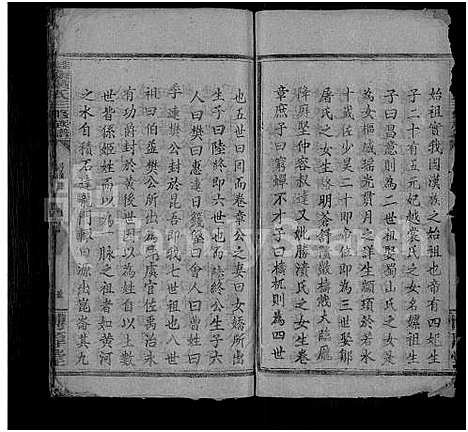 始祖實我國漢族之始祖也帝有四妃
子二十有五元妃越裳氏之女名嫘祖生
子曰昌意則為二世祖娶蜀山氏之女是
為女樞感瑤光貫月之祥生顓頊於若水
十歲佐少昊二十即帝位為三世娶鄒
屠氏之女生
降庭堅仲容叔達又娶勝濆氏之女生卷
章庶子曰窮蟬不才子曰檮杌則為四世
也五世曰回而卷章公之妻曰女嬌所出
生子曰陸終即六世也而陸終公生子六
人曰樊曰惠連曰籛堅曰會人曰曹姓曰
季連公封於昆吾即我七世祖也八世
祠曰伯益樊公所出為虞官佐禹治水
有功爵封於黃後世因以為姓自少數
世皆係姬姓而以為一脈之祖者如黃河
之水自積石達龍門輒曰源出崑崙其九